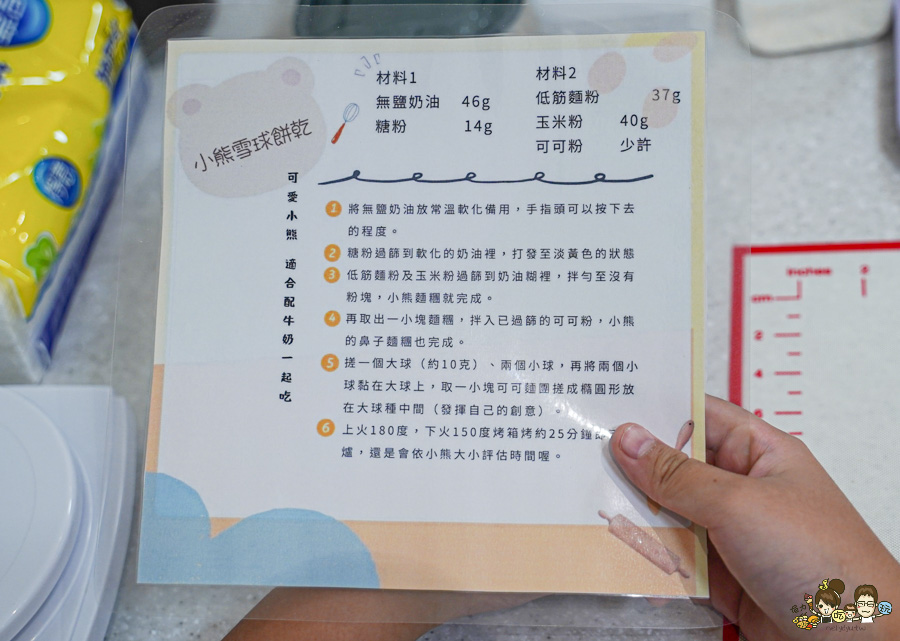 小熊雪球餅乾
可愛小熊 適合配牛奶一起吃
材料1
無鹽奶油 46g
糖粉 14g
材料2
低筋麵粉 37g
玉米粉 40g
可可粉 少許
1 將無鹽奶油放常溫軟化備用，手指頭可以按下去
的程度。
2 糖粉過篩到軟化的奶油裡，打發至淡黃色的狀態
3 低筋麵粉及玉米粉過篩到奶油糊裡，拌勻至沒有
粉塊，小熊麵糰就完成。
4 再取出一小塊麵糰，拌入已過篩的可可粉，小熊
的鼻子麵糰也完成。
5 搓一個大球（約10克）、兩個小球，再將兩個小
球黏在大球上，取一小塊可可麵團搓成橢圓形放
在大球種中間（發揮自己的創意）。
6 上火180度，下火150度烤箱烤約25分鐘即
爐，還是會依小熊大小評估時間喔。
inches
cm
2
4
6